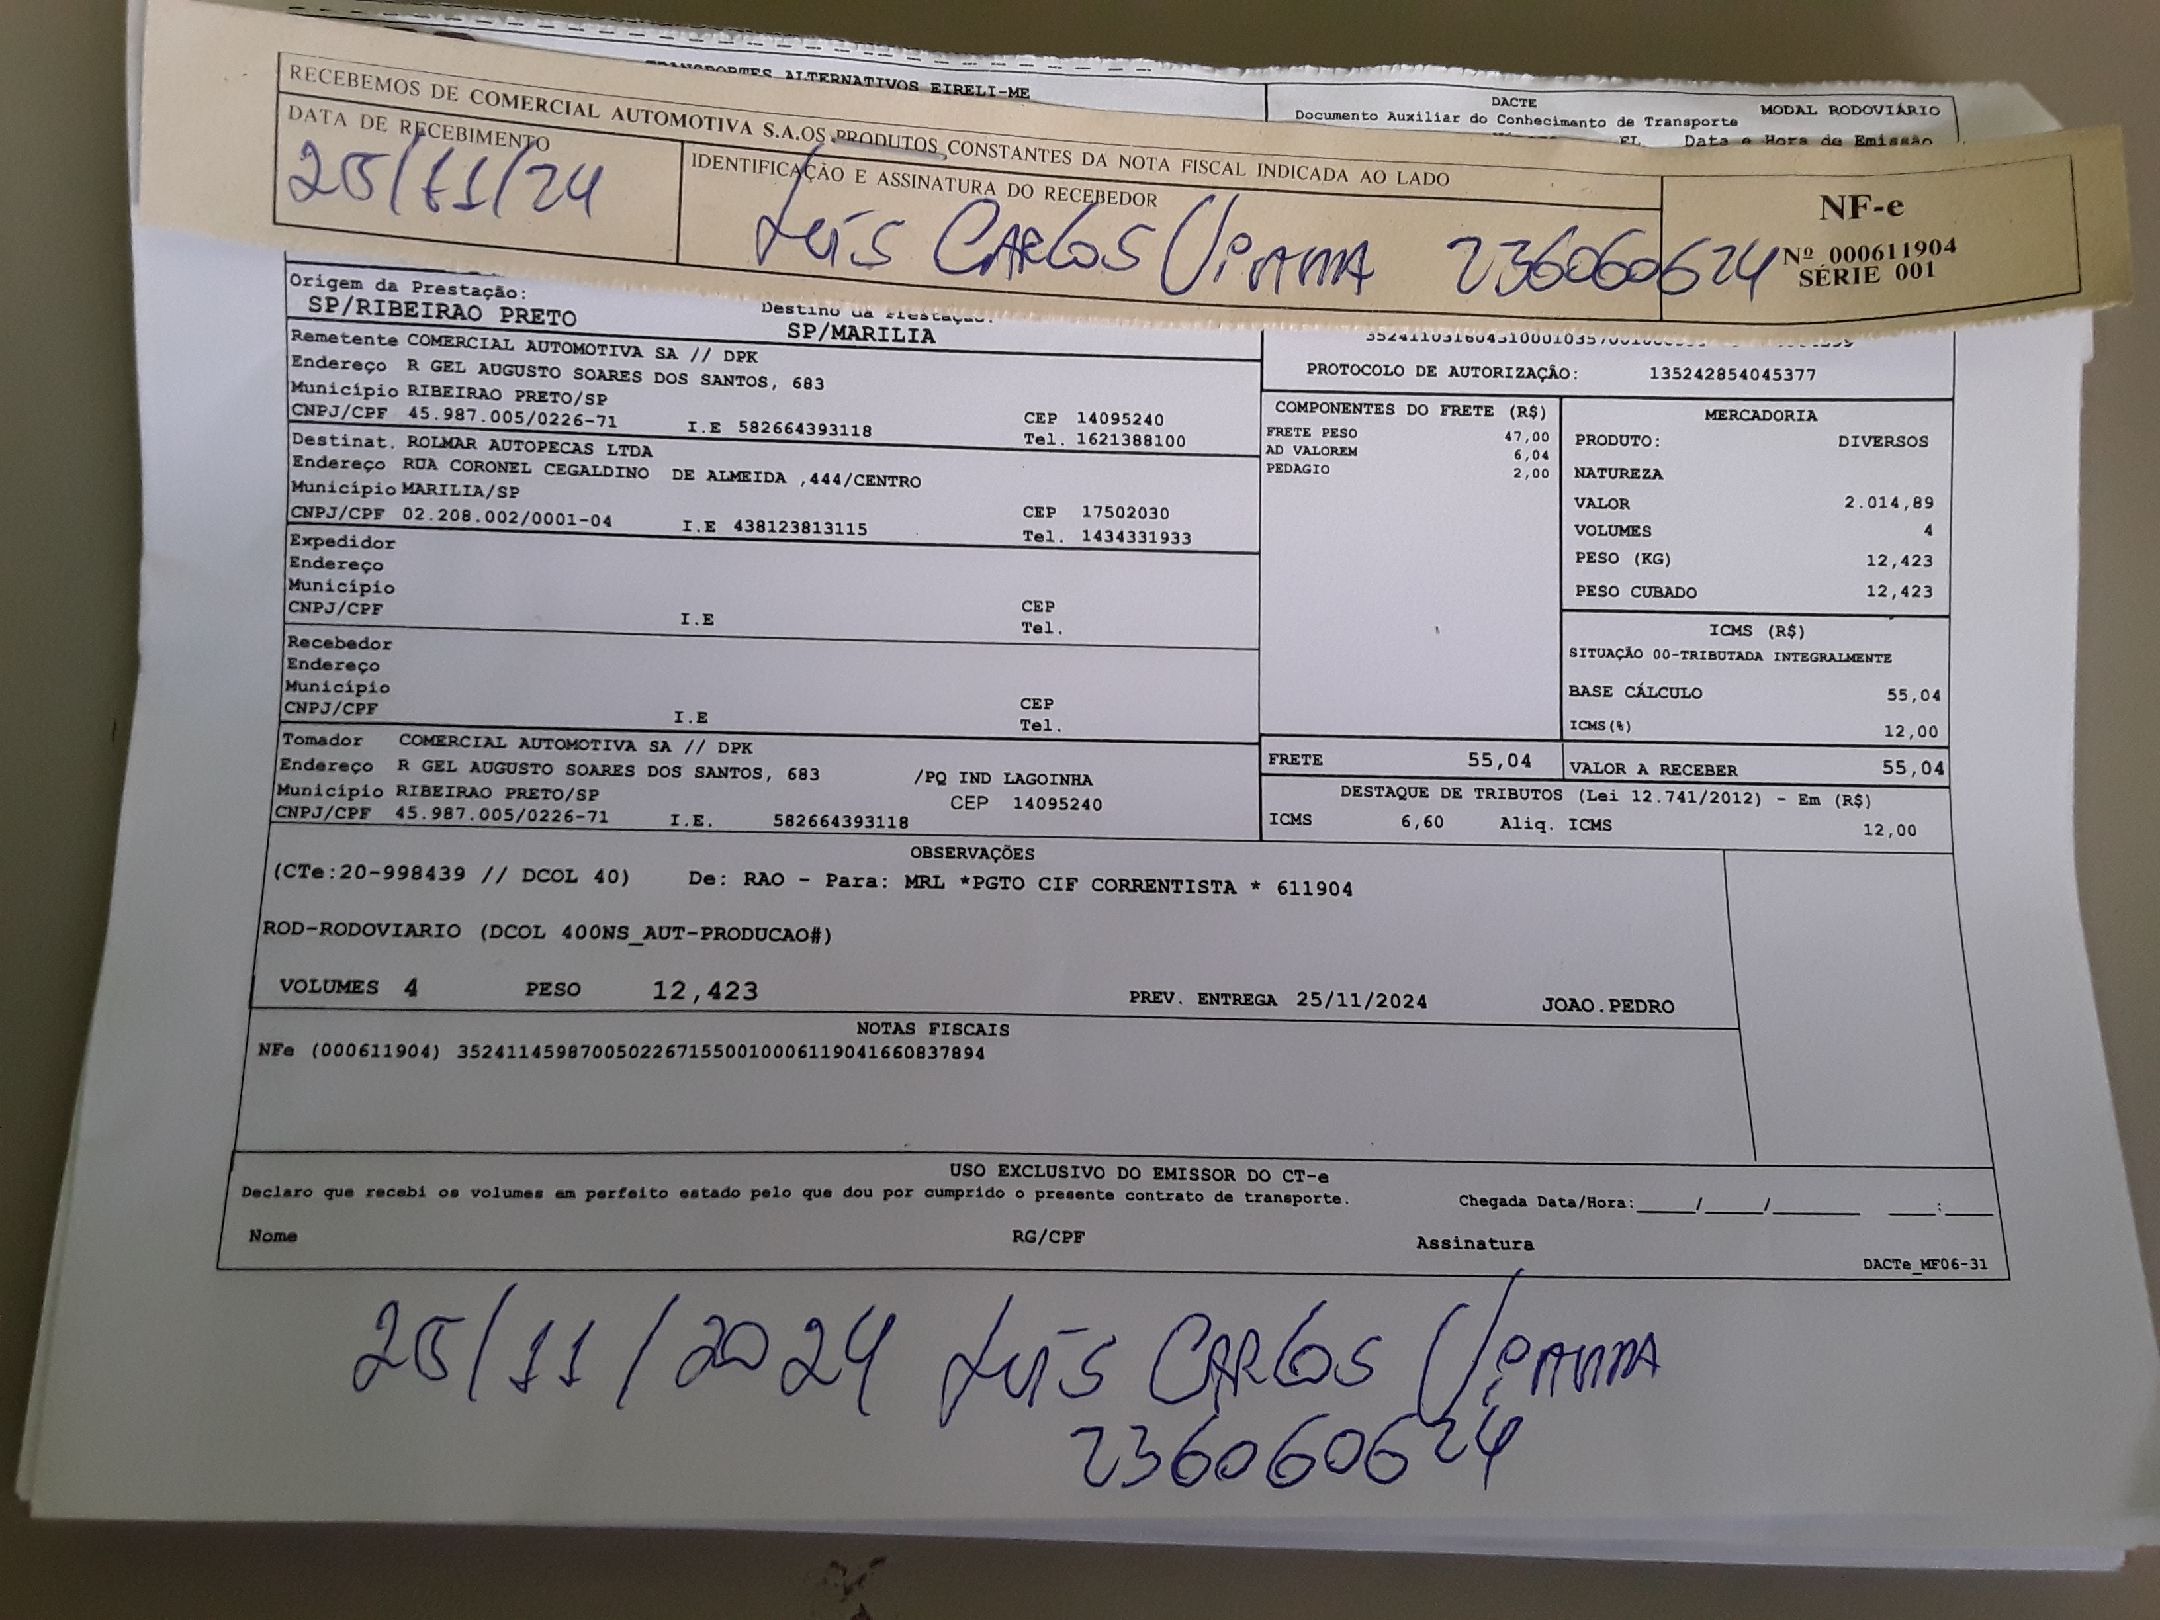 TRANSPORTES ALTERNATIVOS EIRELI-ME
DACTE MODAL RODOVIÁRIO
Documento Auxiliar do Conhecimento de Transporte
FL Data e Hora de Emissão
RECEBEMOS DE COMERCIAL AUTOMOTIVA S.A.OS PRODUTOS CONSTANTES DA NOTA FISCAL INDICADA AO LADO
DATA DE RECEBIMENTO
25/11/24
IDENTIFICAÇÃO E ASSINATURA DO RECEBEDOR
Luís CARLOS 236060624
NF-e
Nº 000611904
SÉRIE 001
Origem da Prestação:
SP/RIBEIRAO PRETO
Destino da Prestação:
SP/MARILIA
Remetente COMERCIAL AUTOMOTIVA SA // DPK
Endereço R GEL AUGUSTO SOARES DOS SANTOS, 683
Município RIBEIRAO PRETO/SP
CEP 14095240
CNPJ/CPF 45.987.005/0226-71 I.E 582664393118
Tel. 1621388100
Destinat. ROLMAR AUTOPECAS LTDA
Endereço RUA CORONEL CEGALDINO DE ALMEIDA ,444/CENTRO
Município MARILIA/SP
CEP 17502030
CNPJ/CPF 02.208.002/0001-04 I.E 438123813115
Tel. 1434331933
Expedidor
Endereço
Município
CEP
CNPJ/CPF I.E
Tel.
Recebedor
Endereço
Município
CEP
CNPJ/CPF I.E
Tel.
Tomador COMERCIAL AUTOMOTIVA SA // DPK
Endereço R GEL AUGUSTO SOARES DOS SANTOS, 683 /PQ IND LAGOINHA
Município RIBEIRAO PRETO/SP CEP 14095240
CNPJ/CPF 45.987.005/0226-71 I.E. 582664393118
PROTOCOLO DE AUTORIZAÇÃO: 135242854045377
COMPONENTES DO FRETE (R$)
FRETE PESO 47,00
AD VALOREM 6,04
PEDAGIO 2,00
MERCADORIA
PRODUTO: DIVERSOS
NATUREZA
VALOR 2.014,89
VOLUMES 4
PESO (KG) 12,423
PESO CUBADO 12,423
ICMS (R$)
SITUAÇÃO 00-TRIBUTADA INTEGRALMENTE
BASE CÁLCULO 55,04
ICMS(%) 12,00
FRETE 55,04
VALOR A RECEBER 55,04
DESTAQUE DE TRIBUTOS (Lei 12.741/2012) - Em (R$)
ICMS 6,60 Aliq. ICMS 12,00
OBSERVAÇÕES
(CTe:20-998439 // DCOL 40) De: RAO - Para: MRL *PGTO CIF CORRENTISTA * 611904
ROD-RODOVIARIO (DCOL 400NS_AUT-PRODUCAO#)
VOLUMES 4 PESO 12,423 PREV. ENTREGA 25/11/2024 JOAO.PEDRO
NOTAS FISCAIS
NFe (000611904) 35241145987005022671550010006119041660837894
USO EXCLUSIVO DO EMISSOR DO CT-e
Declaro que recebi os volumes em perfeito estado pelo que dou por cumprido o presente contrato de transporte. Chegada Data/Hora:____/____/______ ___:___
Nome RG/CPF Assinatura
DACTe_MF06-31
25/11/2024 Luís CARLOS
236060624